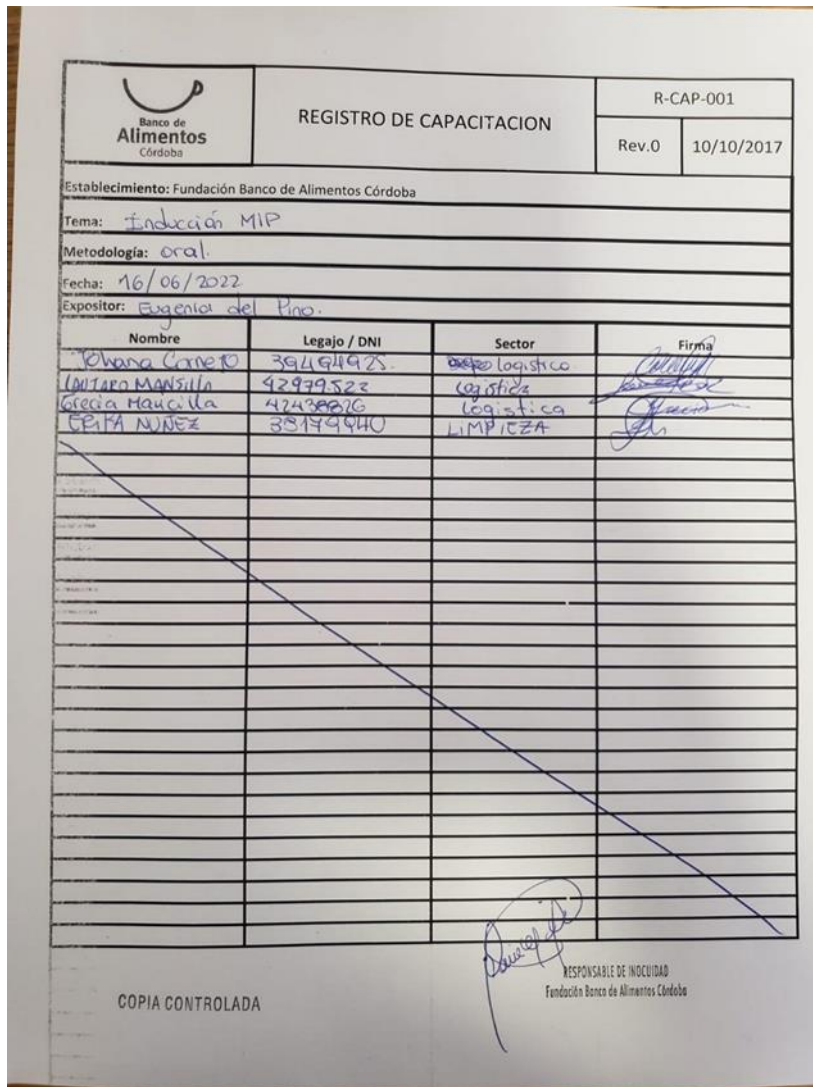 Banco de
Alimentos
Córdoba
REGISTRO DE CAPACITACION
R-CAP-001
Rev.0 10/10/2017
Establecimiento: Fundación Banco de Alimentos Córdoba
Tema: Inducción MIP
Metodología: oral.
Fecha: 16/06/2022
Expositor: Eugenia del Pino.
Nombre Legajo / DNI Sector Firma
Johana 39494925. logistica
LAUTARO MANSILLA 42979.522 Logistica
Grecia Mancilla 42438826 Logistica
ERIKA NUÑEZ LIMPIEZA
RESPONSABLE DE INOCUIDAD
Fundación Banco de Alimentos Córdoba
COPIA CONTROLADA